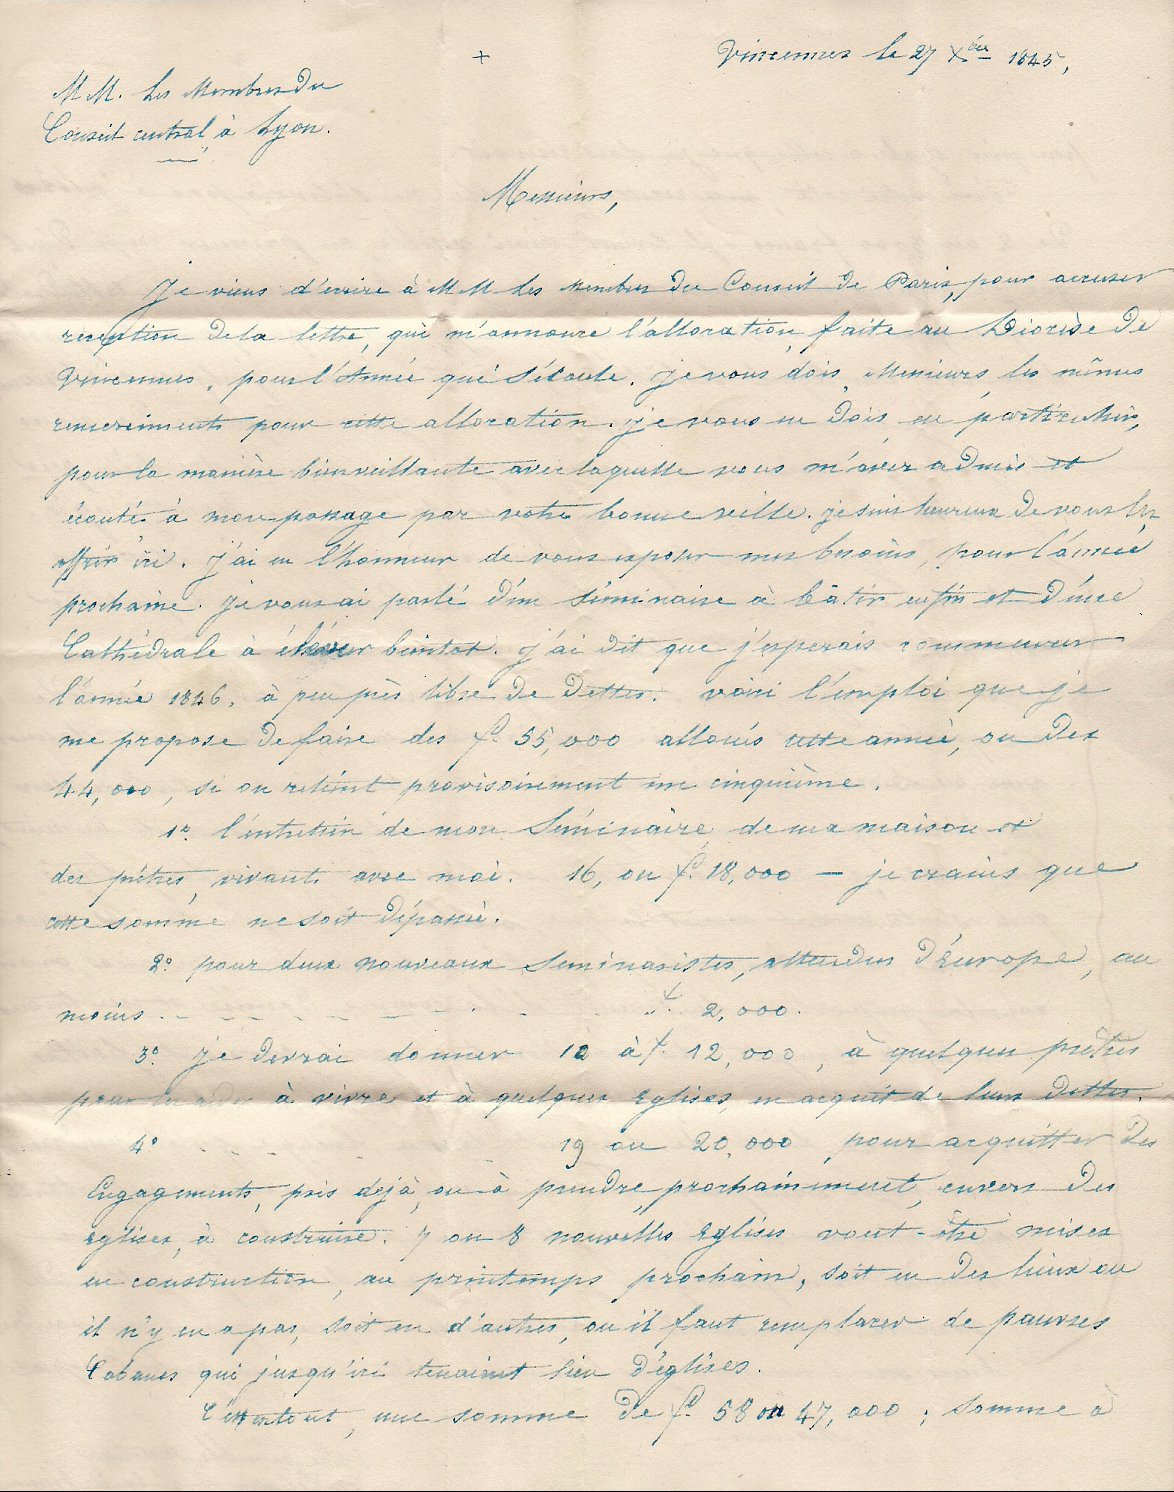 +
Vincennes le 27 Xbre 1845,
MM. les Membres du
Conseil central à Lyon.
Messieurs,
Je viens d'écrire à MM les membres du Conseil de Paris, pour accuser
reception de la lettre, qui m'annonce l'allocation, faite au Diocèse de
Vincennes, pour l'Année qui s'écoule. Je vous dois, Messieurs les mêmes
remerciments pour cette allocation. je vous en dois en particulier,
pour la manière bienveillante avec laquelle vous m'avez admis et
écouté à mon passage par votre bonne ville. je suis heureux de vous les
offrir ici. J'ai eu l'honneur de vous exposer mes besoins, pour l'année
prochaine. Je vous ai parlé d'un séminaire à bâtir enfin et d'une
Cathédrale à élever bientot. J'ai dit que j'esperais commencer
l'année 1846, à peu près libre de dettes. voici l'emploi que je
me propose de faire des f. 55,000 alloués cette année, ou des
44,000, si on retient provisoirement un cinquième.
1º l'entretien de mon Séminaire, de ma maison et
des prêtres, vivants avec moi. 16, ou f. 18,000 — je crains que
cette somme ne soit dépassée.
2º pour deux nouveaux Seminaristes, attendus d'Europe, au
moins . - - - - - - - f. 2,000.
3º Je devrai donner 10 à f. 12,000, à quelques prêtres
pour les aider à vivre et à quelques Eglises, en acquit de leurs dettes.
4º . . . . 19 ou 20,000 pour acquitter des
Engagements, pris déjà, ou à prendre prochainement, envers des
Eglises, à construire. 7 ou 8 nouvelles Eglises vont-être mises
en construction, au printemps prochain, soit en des lieux ou
il n'y en a pas, soit en d'autres, ou il faut remplacer de pauvres
Cabanes qui jusqu'ici tenaient lieu d'églises.
C'est en tout, une somme de f. 58 ou 47,000 ; somme à